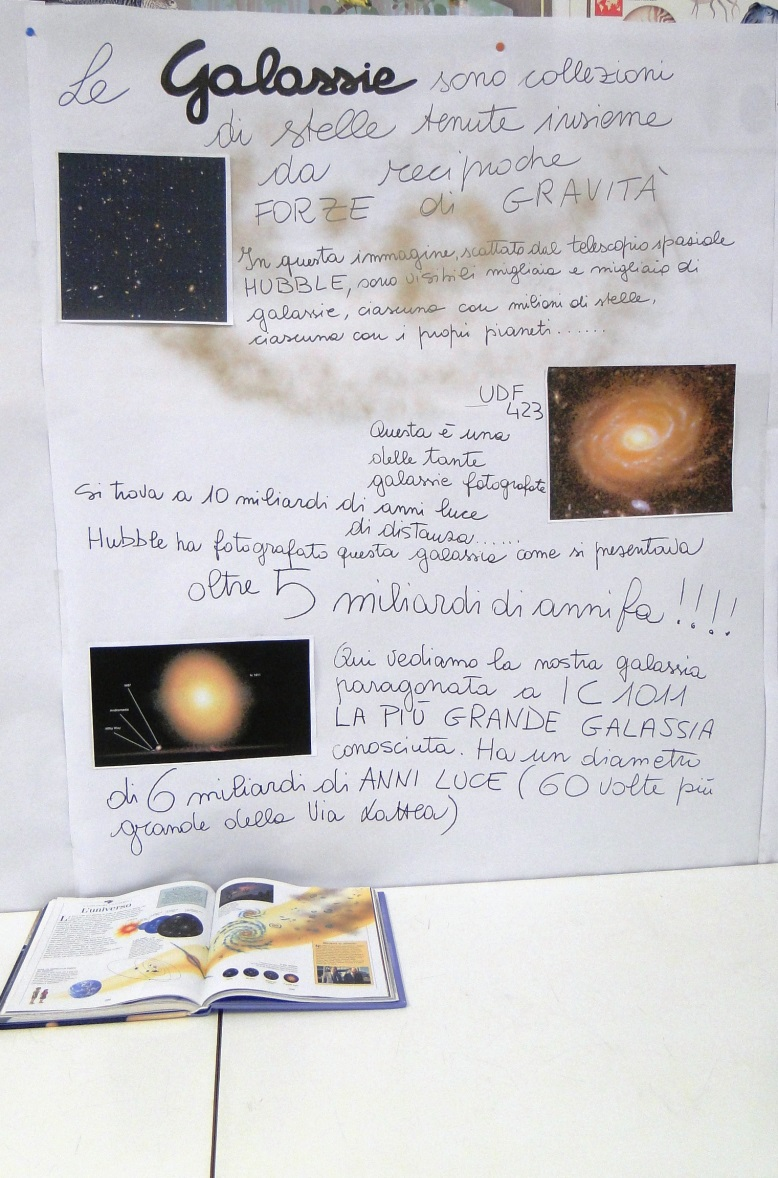 Le Galassie sono collezioni
di stelle tenute insieme
da reciproche
FORZE di GRAVITÀ
In questa immagine, scattata dal telescopio spaziale
HUBBLE, sono visibili migliaia e migliaia di
galassie, ciascuna con milioni di stelle,
ciascuna con i propri pianeti......
UDF
423
Questa è una
delle tante
galassie fotografate
si trova a 10 miliardi di anni luce
di distanza......
Hubble ha fotografato questa galassia come si presentava
oltre 5 miliardi di anni fa!!!!
Qui vediamo la nostra galassia
paragonata a IC 1011
LA PIÙ GRANDE GALASSIA
conosciuta. Ha un diametro
di 6 miliardi di ANNI LUCE (60 volte più
grande della Via Lattea)
L'universo